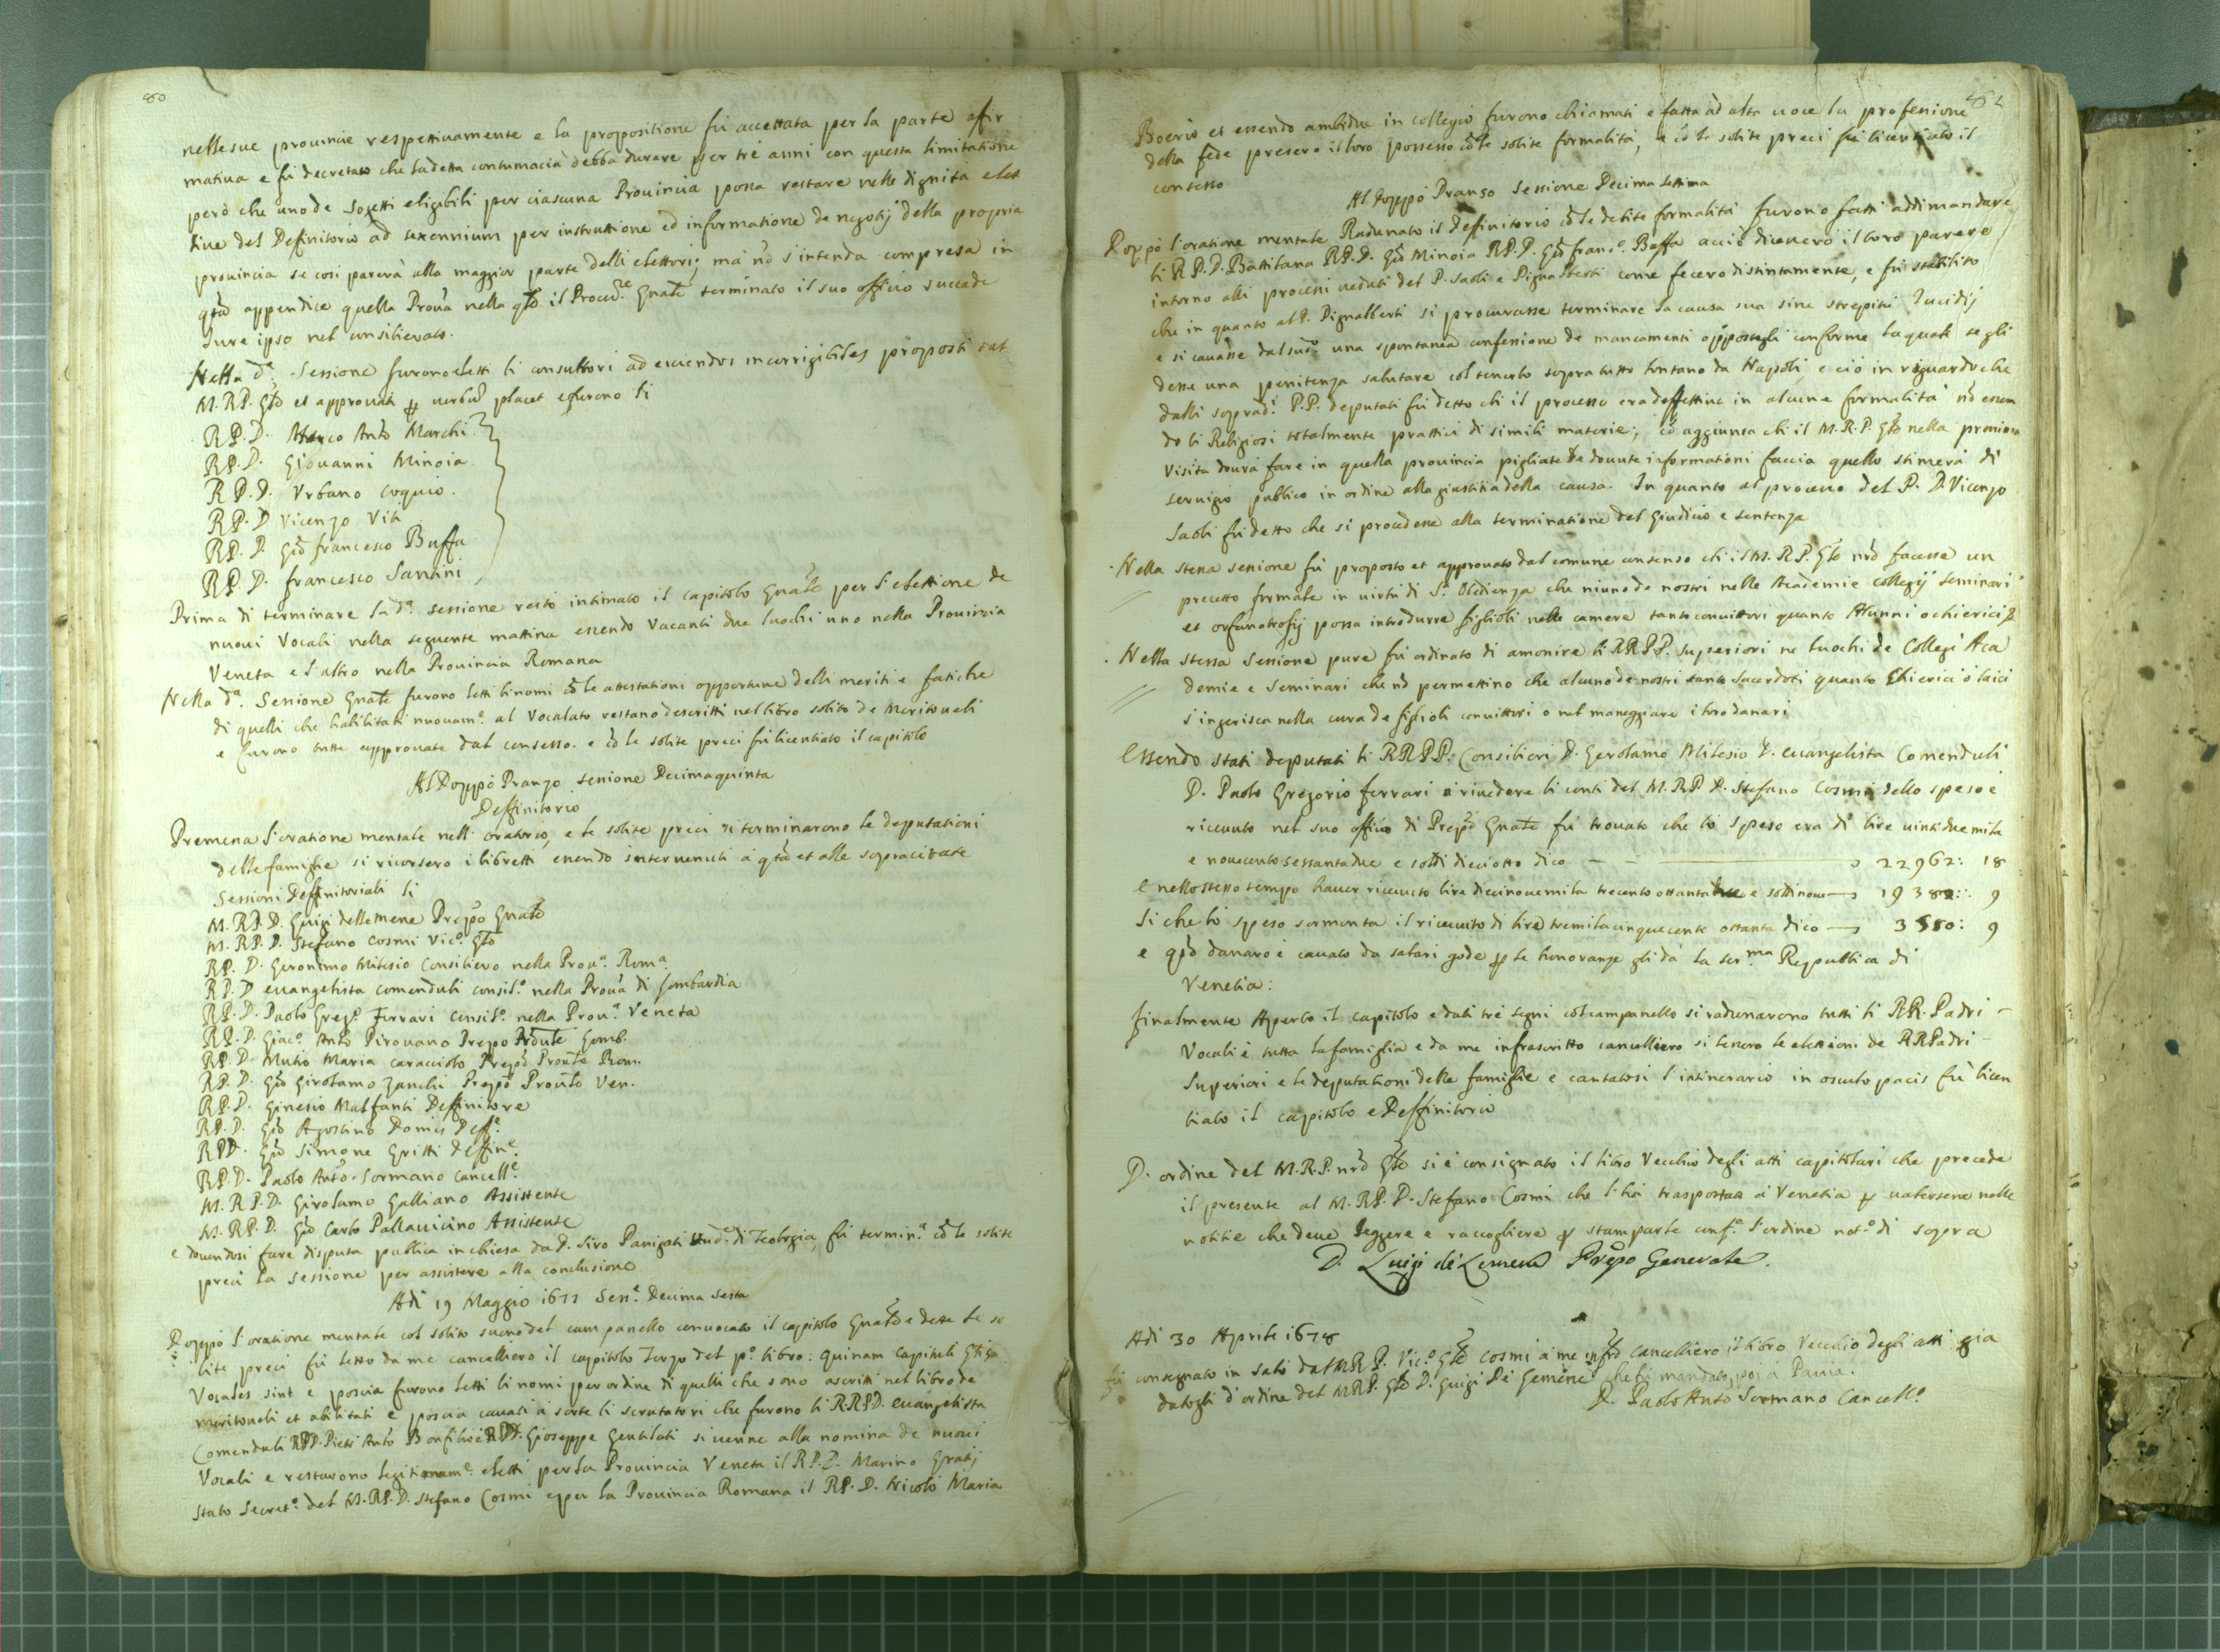 80
nelle sue prouincie respettiuamente e la propositione fù accettata per la parte afir
matiua e fù decretato che la detta contumacia debba durare per trè anni con questa limitatione
però che uno de sogetti eligibili per ciascuna Prouincia possa restare nelle dignità elet
tiue del Definitorio ad sexennium per instruttione ed informatione de negotij della propria
prouincia se così parerà alla maggior parte delli elettori; mà nõ s'intenda compresa in
qta appendice quella Proua nella qle il Procre Gnale terminato il suo officio succede
Iure ipso nel consilierato.
Nella da. Sessione furono eletti li consultori ad eiciendos incorrigibiles proposti dal
M.R.P. Gle et approuati p uerbũ placet e furono li
R.P.D. Marco Anto Marchi.
R.P.D. Giouanni Minoia.
R.P.D. Vrbano Coquio.
R.P.D Vicenzo Viti
R.P.D. Gio francesco Buffa
R.P.D. francesco Santini
Prima di terminare la da. sessione restò intimato il capitolo Gnale per l'elettione de
nuoui Vocali nella seguente mattina essendo Vacanti due luochi uno nella Prouincia
Veneta e l'altro nella Prouincia Romana
Nella da. Sessione Gnale furono letti li nomi cõ le attestationi opportune delli meriti e fatiche
di quelli che habilitati nuouame. al Vocalato restano descritti nel libro solito de Meritoueli
e furono tutte approuate dal consesso. e cõ le solite preci fù licentiato il capitolo
Al Doppò Pranzo sessione Decimaquinta
Deffinitorio
Premessa l'oratione mentale nell'oratorio, e le solite preci si terminarono le deputationi
delle famiglie si ricorsero i libretti, essendo interuenuti à qta et alle sopracitate
Sessioni Deffinitoriali li
M.R.P.D. Luigi dellemene Prepo Gnale
M.R.P.D. Stefano Cosmi Vico. Gle
R.P.D. Geronimo Milesio Consiliero nella Proua. Roma.
R.P.D euangelista Comenduli consilo. nella Proua di Lombardia
R.P.D. Paolo Grego. Ferrari Consilo. nella Proua. Veneta
R.P.D. Giaco. Anto Pirouano Prepo Prõule Lomb.
R.P.D. Mutio Maria Caracciolo Prepo Proule Rom.
R.P.D. Gio Girolamo Zanchi Prepo Proule Ven.
R.P.D. Ginesio Malfanti Deffinitore
R.P.D. Gio Agostino Domis Deffe.
R.P.D. Gio Simone Gritti Deffine.
R.P.D. Paolo Anto. Sormano Cancelle.
M.R.P.D. Girolamo Galliano Assistente
M.R.P.D. Gio Carlo Pallauicino Assistente
e douendosi fare disputa publica in chiesa da D. Siro Panigati di Teologia, fù termina. cõ le solite
preci la sessione per assistere alla conclusione
Adi 19 Maggio 1677 Sese. Decima sesta
Doppò l'oratione mentale col solito suono del campanello conuocato il capitolo Gnale e dette le so
lite preci fù letto da me cancelliero il capitolo Terzo del po. libro: quinam Capituli Glis
Vocales sint e poscia furono letti li nomi per ordine di quelli che sono ascritti nel libro de
meritoueli et abilitati e poscia cauati à sorte li scrutatori che furono li R.R.P.D. euangelista
Comenduli R.P.D. Pietro Anto Bonfilio e R.P.D. Gioseppe Gentilati si uenne alla nomina de nuoui
Vocali e restarono legitimame. eletti per la Prouincia Veneta il R.P.D. Marino Gratij
stato Secreto. del M.R.P.D. Stefano Cosmi e per la Prouincia Romana il R.P.D. Nicolò Maria
Boerio et essendo ambidue in collegio furono chiamati e fatta ad alta uoce la professione
della fede presero il loro possesso cõ le solite formalità, e cõ le solite preci fù licentiato il
consesso
Al Doppò Pranso Sessione Decima Settima
Doppò l'oratione mentale Radunato il definitorio cõ le debite formalità furono fatti addimandare
li R.P.D. Battilana R.P.D. Gio Minoia R.P.D. Gio Franco. Buffa acciò dicessero il loro parere
intorno alli processi ueduti del P. Saoli e Pignalberti come fecero distintamente, e fù stabilito
che in quanto al P. Pignalberti si procurasse terminare la causa sua sine strepitu Iudicij
e si cauasse dal sudo. una spontanea confessione de mancamenti oppostegli conforme la quale se gli
desse una penitenza salutare col tenerlo sopra tutto lontano da Napoli, e ciò in riguardo che
dalli sopradi. P.P. deputati fù detto chi il processo era deffettiuo in alcune formalità nõ essen
do li Religiosi totalmente prattici di simili materie; cõ aggiunta chi il M.R.P. Gle nella prossima
Visita dourà fare in quella prouincia pigliate le douute informationi faccia quello stimerà di
seruigio publico in ordine alla giustitia della causa. In quanto al processo del P. D. Vicenzo
Saoli fù detto che si procedesse alla terminatione del Giudicio e sentenza
Nella stessa sessione fù proposto et approuato dal comune consenso chi il M.R.P. Gle nrõ facesse un
precetto formale in uirtù di Sa. Obedienza che niuno de nostri nelle Academie collegij seminari
et orfanotrofij possa introdurre figlioli nelle camere tanto conuittori quanto Alunni o chierici
Nella stessa sessione pure fù ordinato di amonire li R.R.P.P. superiori ne luochi de Collegi Aca
demie e Seminari che nõ permettino che alcuno de nostri tanto sacerdoti quanto Chierici ò laici
s'ingerisca nella cura de figlioli conuittori o nel maneggiare i loro danari
Essendo stati deputati li R.R.P.P. Consilieri D. Gerolamo Milesio D. euangelista Comenduli
D. Paolo Gregorio ferrari à riuedere li conti del M.R.P.D. Stefano Cosmi dello speso e
riceuuto nel suo officio di Prepo Gnale fù trouato che lo speso era di lire uintiduemila
e nouecento sessantadue e soldi dieciotto dico 22962: 18
e nello stesso tempo hauer riceuuto lire diecinouemila trecento ottantadue e soldi noue 19382: 9
Si che lo speso sormonta il riceuuto di lire tremila cinquecento ottanta dico 3580: 9
e qto danaro è cauato da salari gode p le honoranze gli dà la serma Republica di
Venetia:
finalmente Aperto il capitolo e dati trè segni col campanello si radunarono tutti li RR. Padri
Vocali è tutta la famiglia e da me infrascritto cancelliero si lessero le elettioni de RR Padri
Superiori e le deputationi delle famiglie e cantatosi l'intinerario in osculo pacis fù licen
tiato il capitolo e Deffinitorio
D. ordine del M.R.P. nrõ Gle si è consignato il libro Vecchio degli atti capitolari che precede
il presente al M.R.P.D. Stefano Cosmi che l'hà trasportato à Venetia p ualersene nelle
notitie che deue leggere e raccogliere p stamparle confe. l'ordine noto. di sopra
D. Luigi de Lemene Prepo Generale.
Adi 30 Aprile 1678
fù consegnato in Salò dal M.R.P. Vico. Gle Cosmi à me infro Cancelliero il libro Vecchio degli atti già
datogli d'ordine del M.R.P. Gle D. Luigi De Lemene che fù mandato poi à Pauia.
D. Paolo Anto Sormano Cancello.